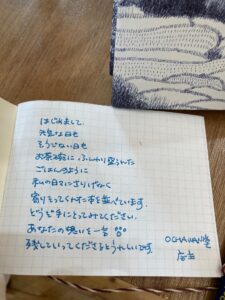 はじめまして。
元気な日も
そうでない日も
お茶碗に、ふんわり盛られた
ごはんのように
私の日々にさりげなく
寄りそってくれた本を並べています。
どうぞ手にとってみてください。
あなたの想いを一言
残していってくださるとうれしいです。
OCHAWAN堂
店主